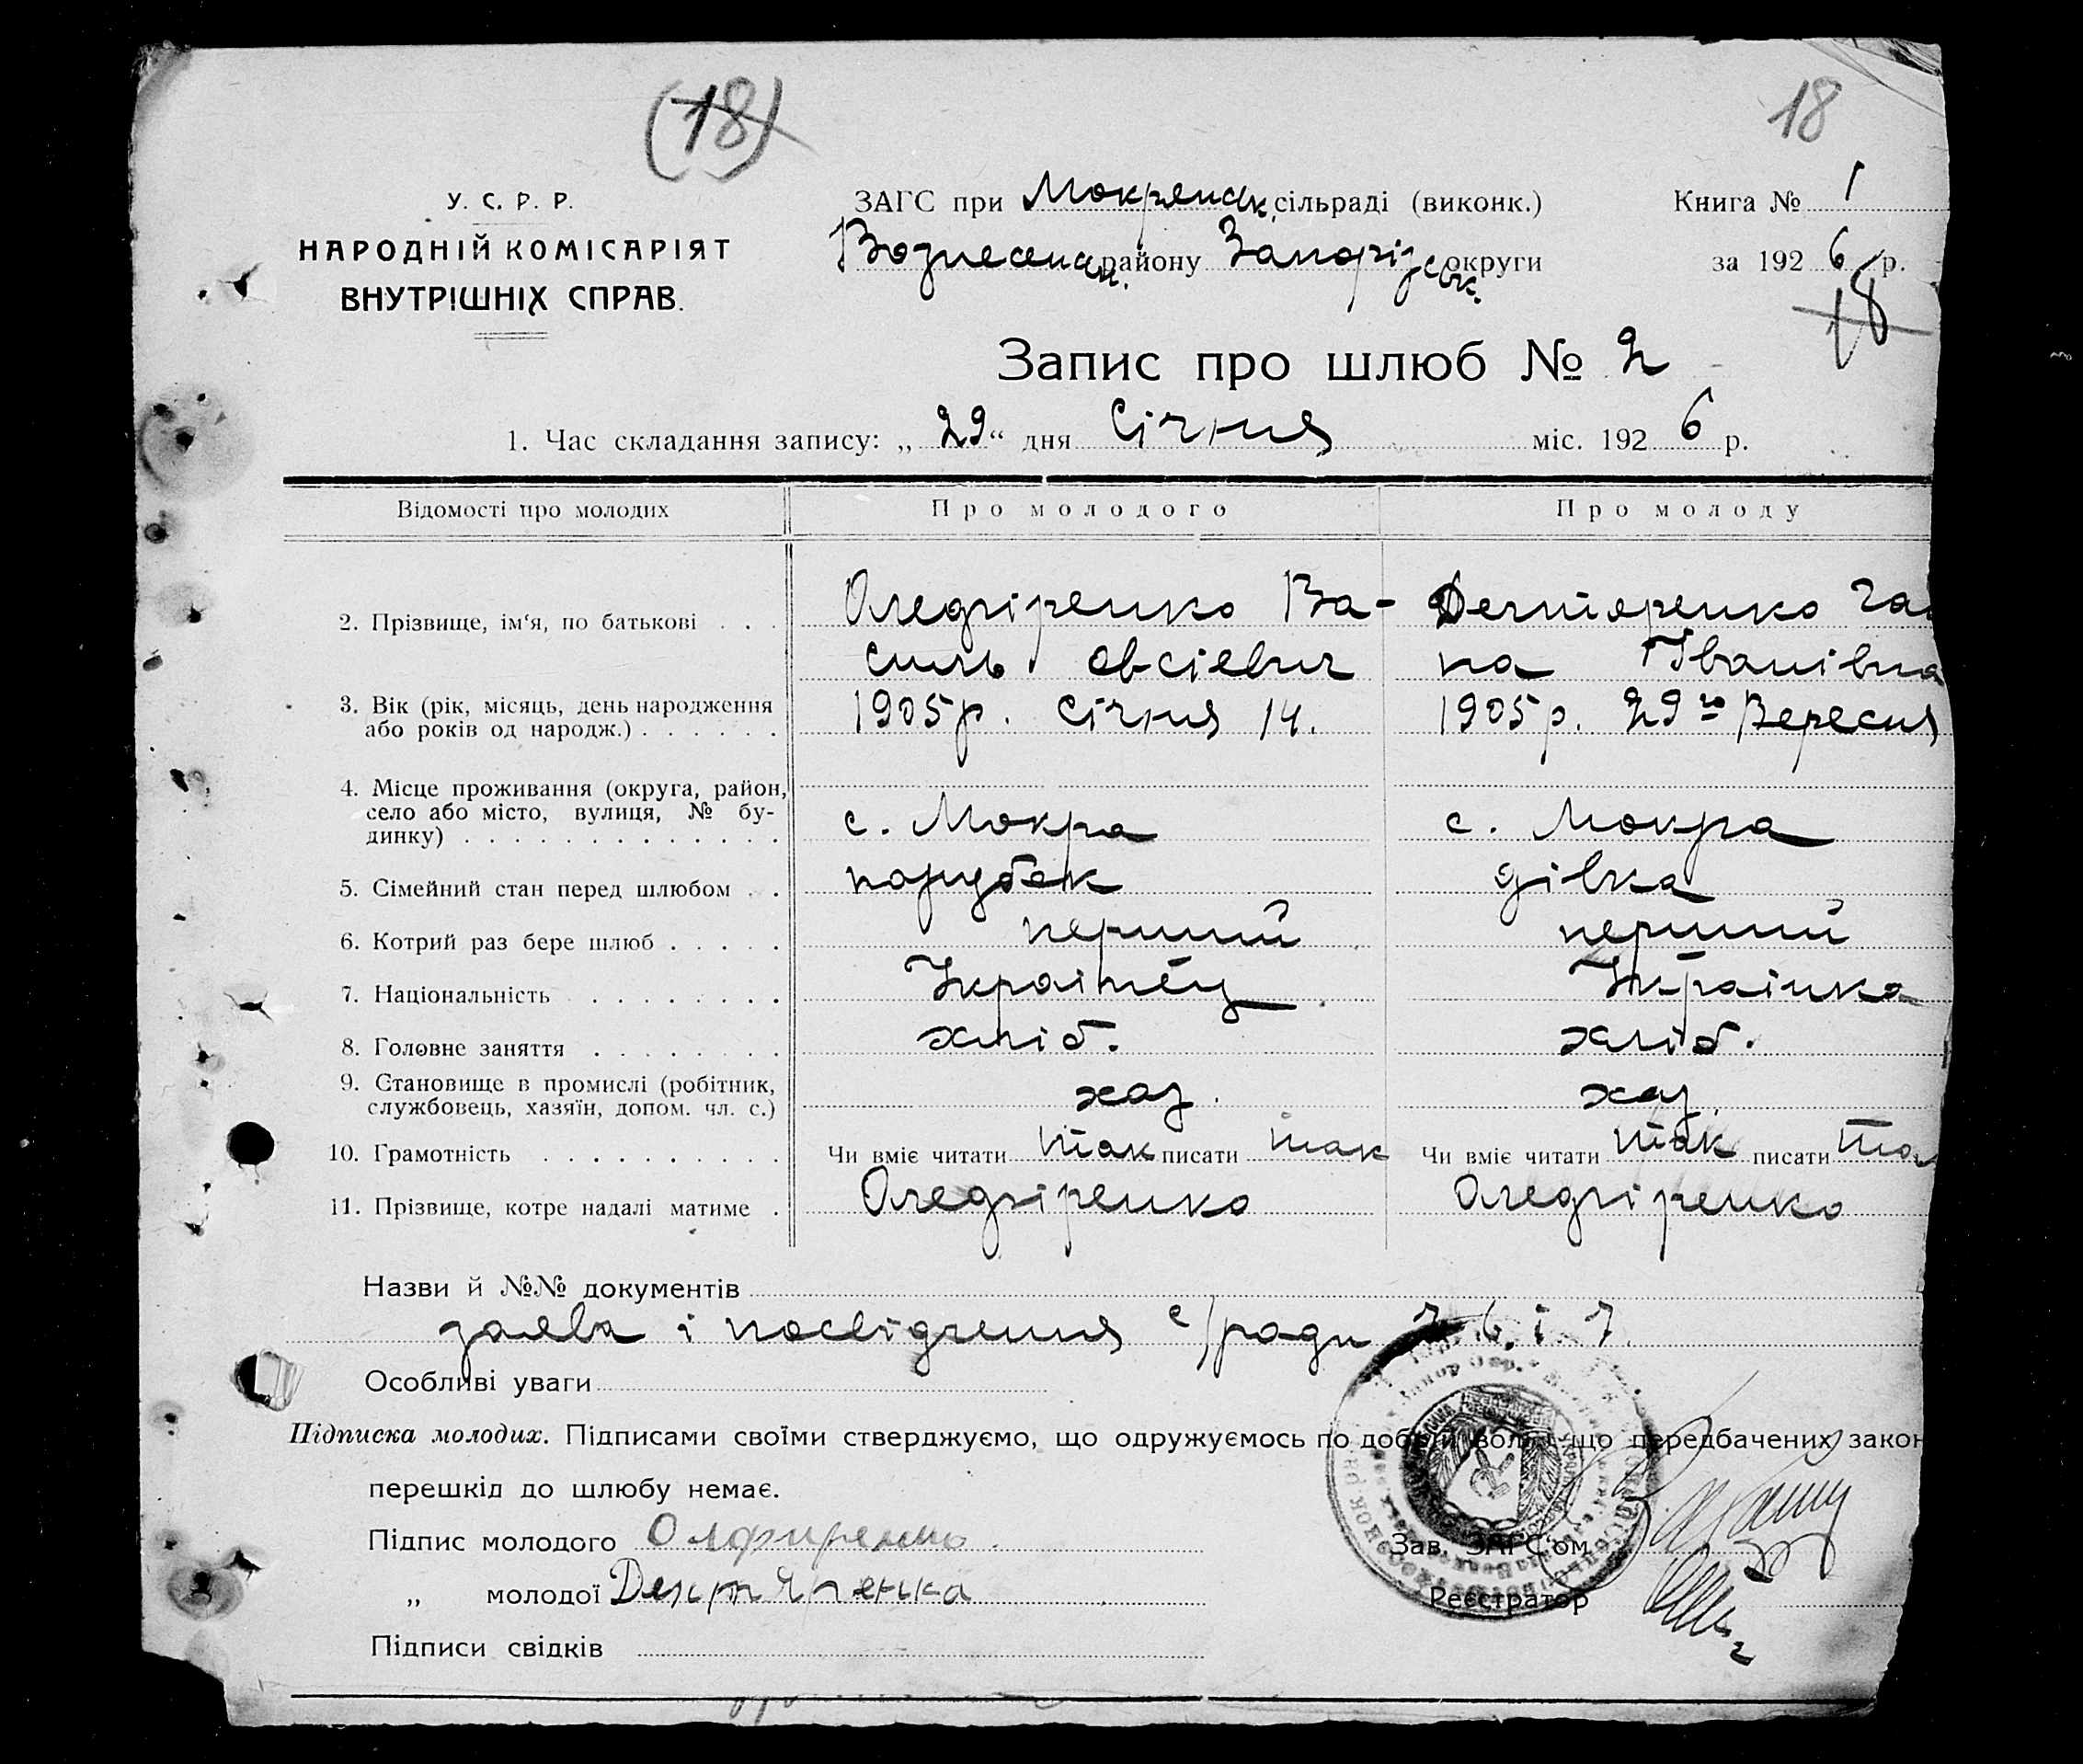 (18)
18
У. С. Р. Р.
НАРОДНІЙ КОМІСАРІЯТ
ВНУТРІШНІХ СПРАВ.
ЗАГС при Мокрянск. сільраді (виконк.)
Книга № 1
Вознесенск. району Запорізск. округи
за 1926 р.
18
Запис про шлюб № 2
1. Час складання запису: „29“ дня Січния міс. 1926 р.
Відомості про молодих
Про молодого
Про молоду
2. Прізвище, ім‘я, по батькові . . .
Оледзіренко Ва-
силь Овсієвич
Дегтяренко
на Іванівна
3. Вік (рік, місяць, день народження
або років од народж.) . . . . . .
1905р. Січния 14.
1905р. 29го Вересня
4. Місце проживання (округа, район,
село або місто, вулиця, № бу-
динку) . . . . . . . . . . . . .
с. Мокра
с. Мокра
5. Сімейний стан перед шлюбом . .
парубок
дівка
6. Котрий раз бере шлюб . . . . .
перший
перший
7. Національність . . . . . . . .
Українец
Українка
8. Головне заняття . . . . . . . .
хліб.
хліб.
9. Становище в промислі (робітник,
службовець, хазяїн, допом. чл. с.)
хаз.
хаз.
10. Грамотність . . . . . . . . . .
Чи вміє читати так писати так
Чи вміє читати так писати та
11. Прізвище, котре надалі матиме .
Оледзіренко
Оледзіренко
Назви й №№ документів
заява і посвідчення с/ради № 6 і 7.
Особливі уваги
Підписка молодих. Підписами своїми стверджуємо, що одружуємось по добрій волі що передбачених закон
перешкід до шлюбу немає.
Підпис молодого Олфиренко
Зав. ЗАГС‘ом
„ молодої Дехтяренка
Реєстратор
Підписи свідків